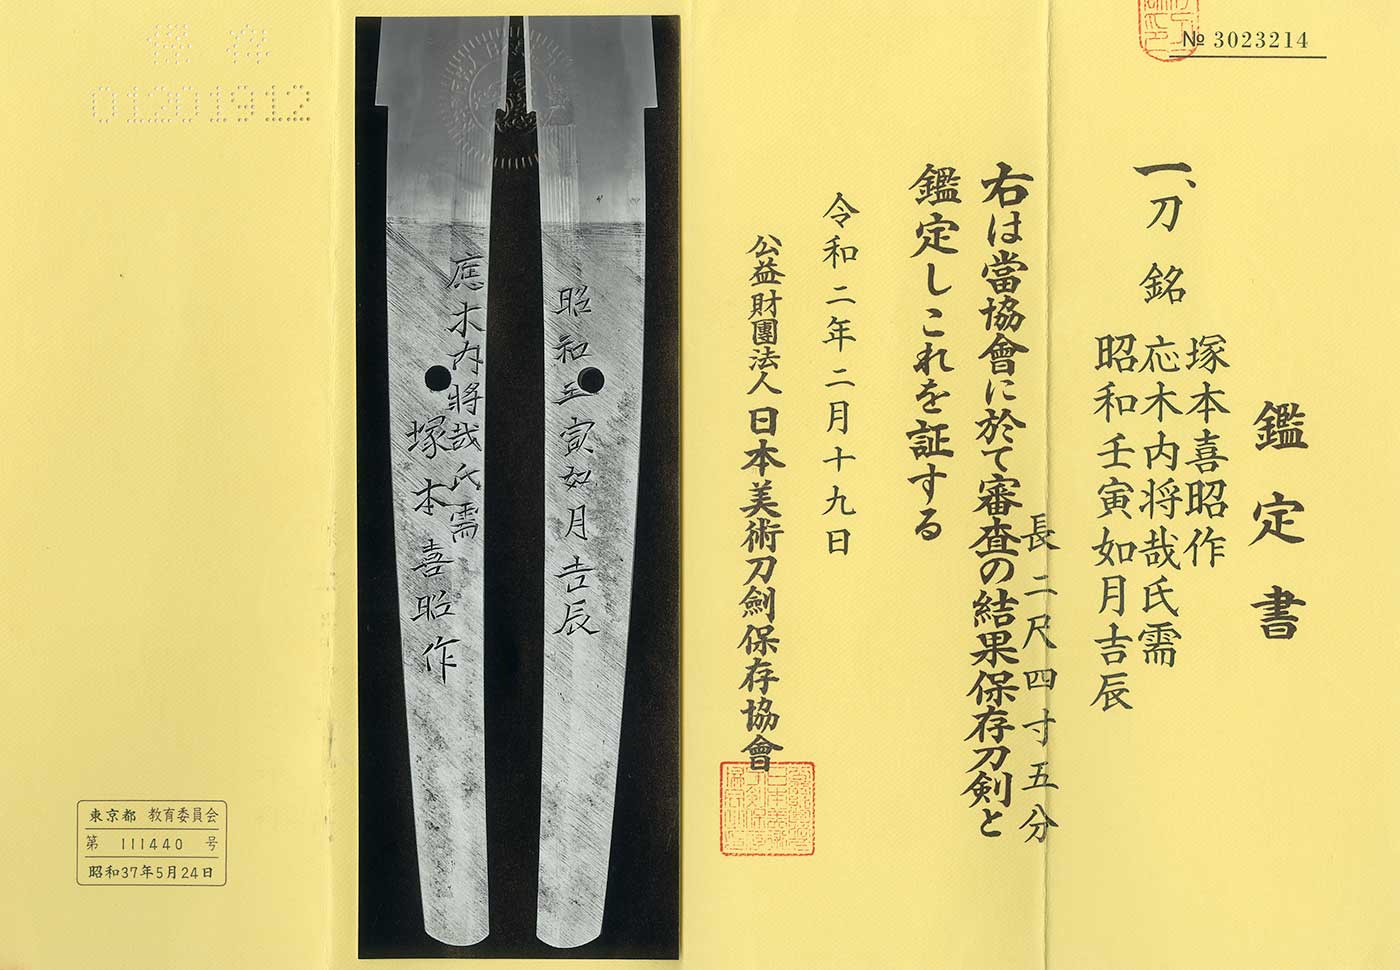 № 3023214
鑑定書
一、刀 銘
塚本喜昭作
応木内将哉氏需
昭和壬寅如月吉辰
長 二尺四寸五分
右は當協會に於て審査の結果保存刀剣と
鑑定しこれを証する
令和二年二月十九日
公益財團法人 日本美術刀劍保存協會
昭和壬寅如月吉辰
應木内將哉氏需
塚本喜昭作
保存
01201912
東京都 教育委員会
第 111440 号
昭和37年5月24日